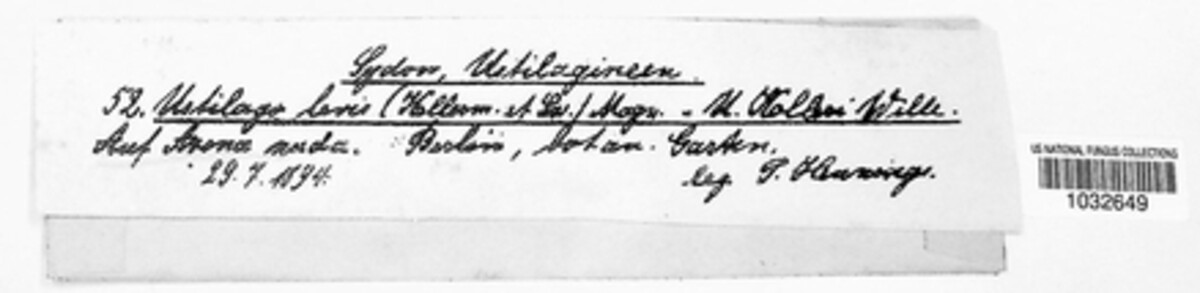 Sydow, Ustilagineen.
52. Ustilago levis (Kellerm. et Sw.) Magn. - U. Kolleri Wille.
Auf Avena nuda. Berlin, botan. Garten.
29.7.1894. leg. P. Hennings.
US NATIONAL FUNGUS COLLECTIONS
1032649